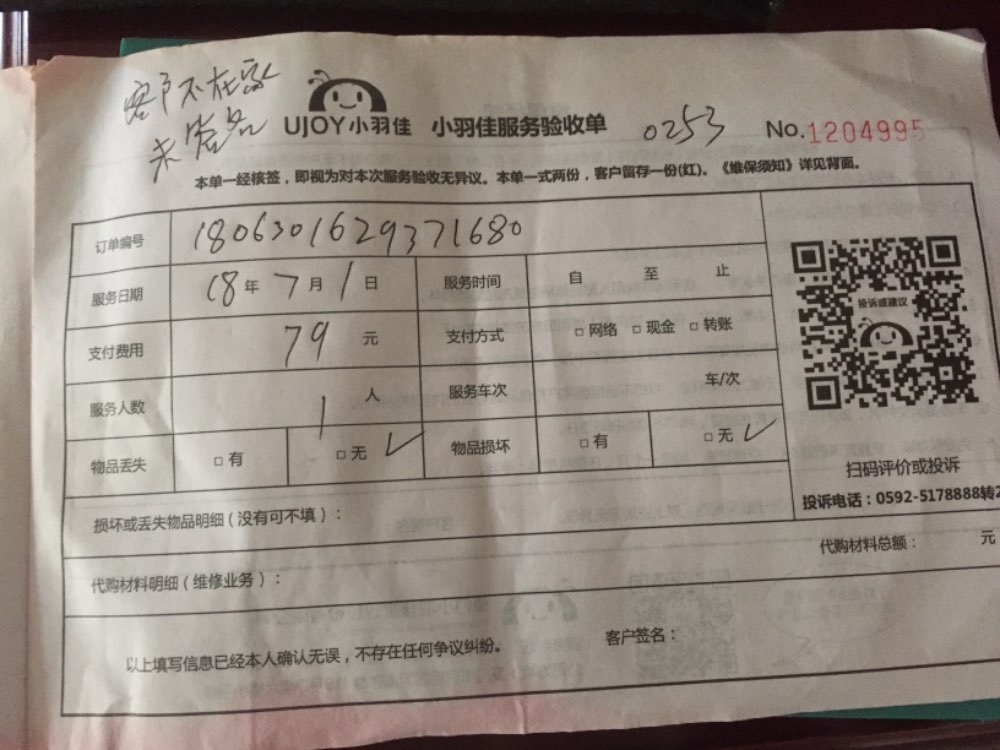 客户不在家
未签名
UJOY小羽佳 小羽佳服务验收单 0253 No.1204995
本单一经核签，即视为对本次服务验收无异议。本单一式两份，客户留存一份(红)。《维保须知》详见背面。
订单编号 1806301629371680
服务日期 18年7月1日 服务时间 自 至 止
支付费用 79元 支付方式 □网络 □现金 □转账
服务人数 1人 服务车次 车/次
物品丢失 □有 □无✓ 物品损坏 □有 □无✓
投诉或建议
扫码评价或投诉
投诉电话：0592-5178888转2
损坏或丢失物品明细（没有可不填）：
代购材料明细（维修业务）： 代购材料总额： 元
以上填写信息已经本人确认无误，不存在任何争议纠纷。 客户签名：